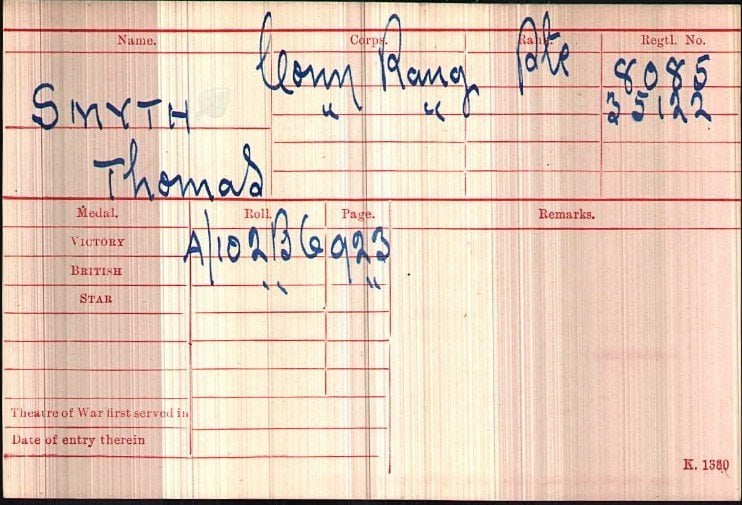 Name. Corps. Rank. Regtl. No.
SMYTH Conn Rang Pte 8085
" " 35122
Thomas
Medal. Roll. Page. Remarks.
VICTORY A/102B6 923
BRITISH " "
STAR
Theatre of War first served in
Date of entry therein
K. 1380